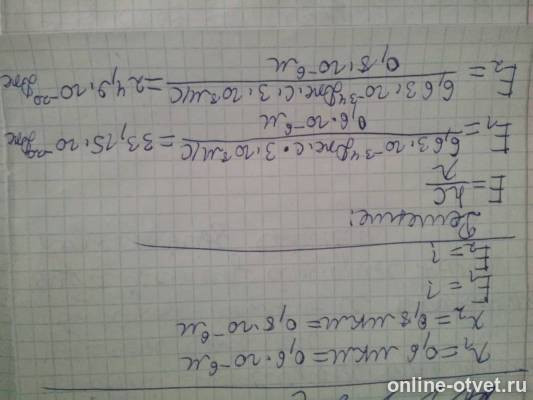 λ₁=0,6 мкм=0,6·10⁻⁶м
λ₂=0,8 мкм=0,8·10⁻⁶м
E₁=?
E₂=?
Решение:
E=hc/λ
E₁=6,63·10⁻³⁴Дж·с·3·10⁸м/с/0,6·10⁻⁶м=33,15·10⁻²⁰Дж
E₂=6,63·10⁻³⁴Дж·с·3·10⁸м/с/0,8·10⁻⁶м=24,9·10⁻²⁰Дж
online-otvet.ru